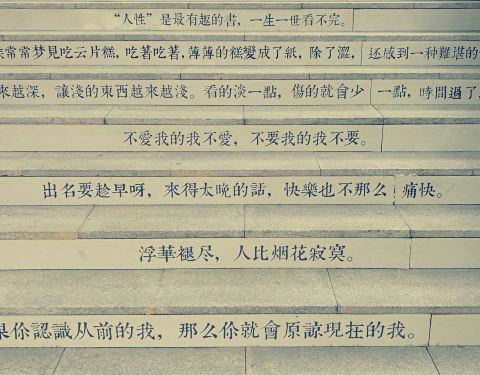 “人性”是最有趣的書，一生一世看不完。
常常梦見吃云片糕，吃著吃著，薄薄的糕變成了紙，除了澀，还感到一种難堪的
來越深，讓淺的東西越來越淺。看的淡一點，傷的就會少一點，時間過了，
不愛我的我不愛，不要我的我不要。
出名要趁早呀，來得太晚的話，快樂也不那么痛快。
浮華褪尽，人比烟花寂寞。
果你認識从前的我，那么你就會原諒現在的我。